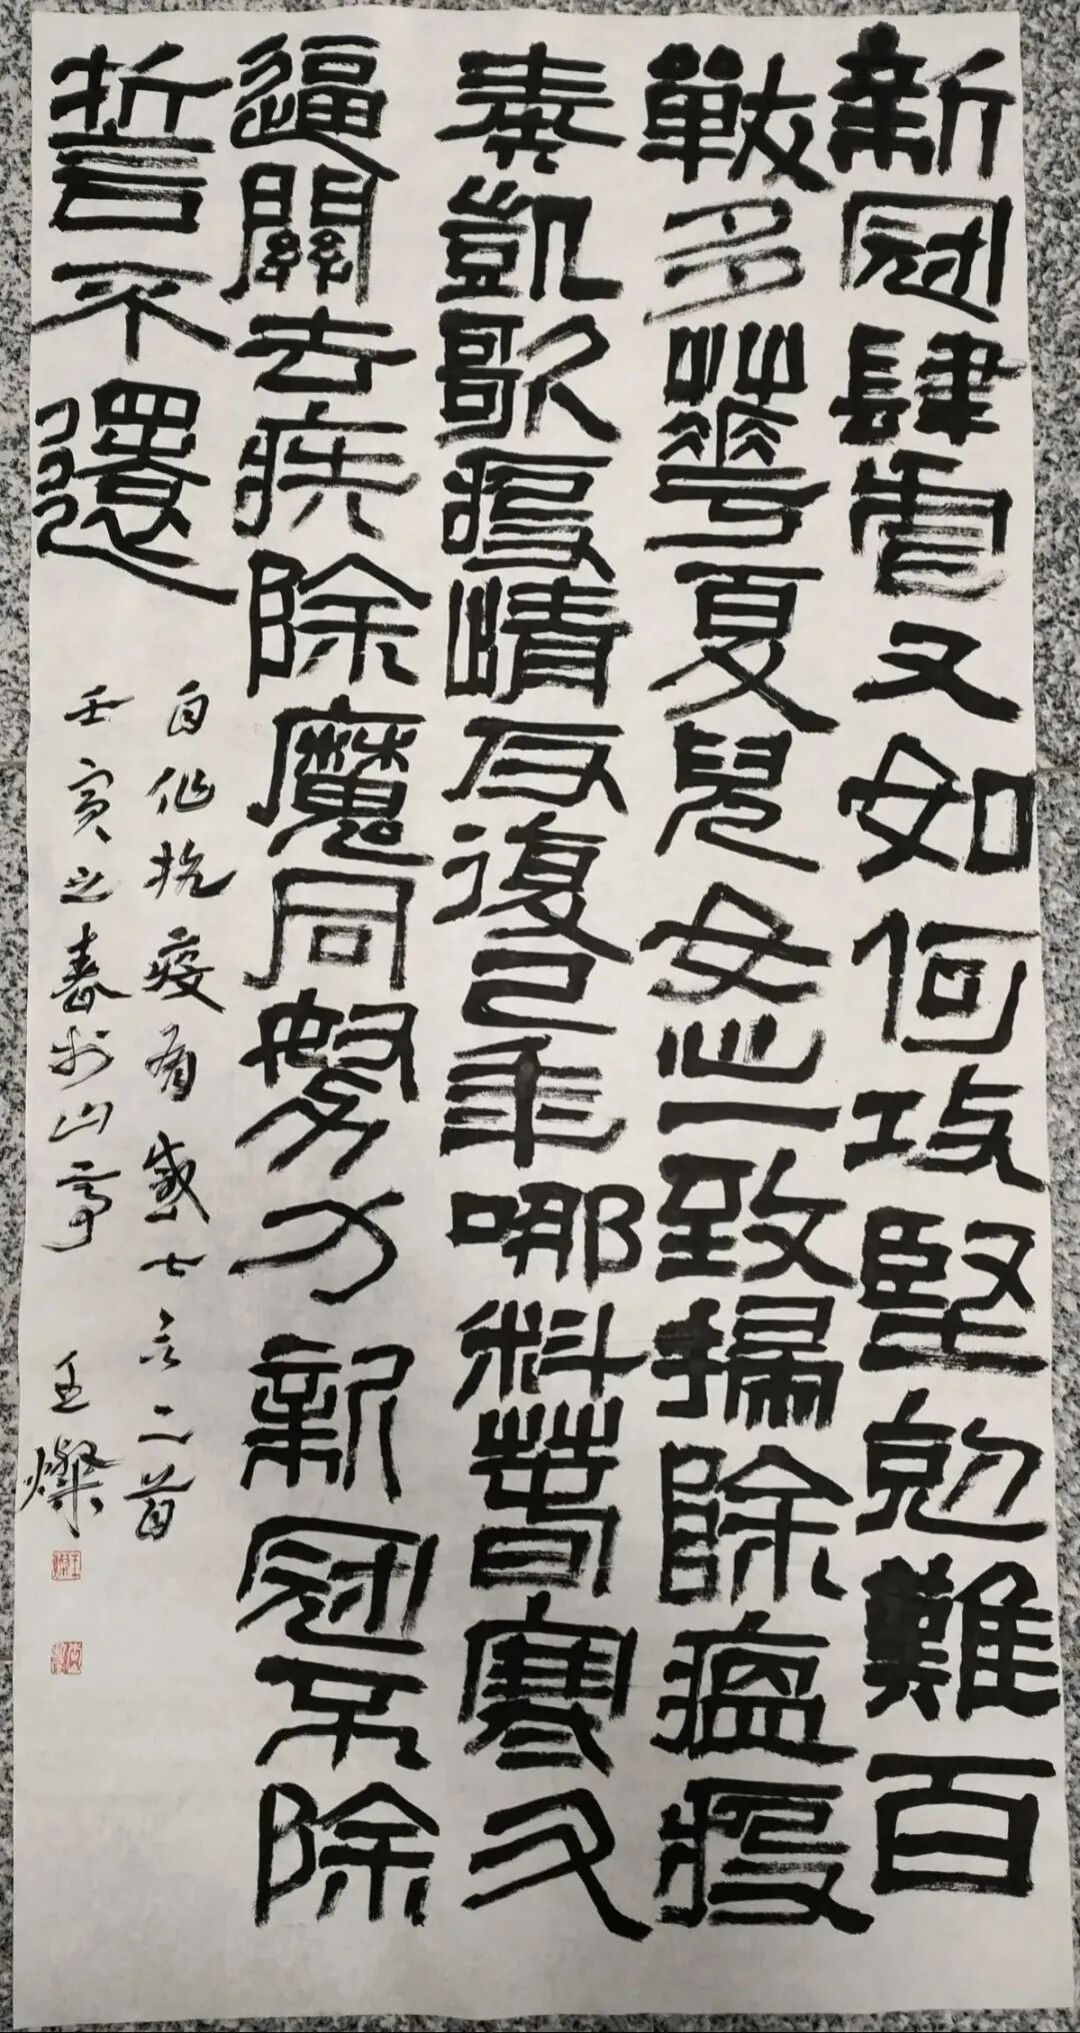 新冠肆虐又如何攻堅勀難百
戰多華夏兒女心一致掃除瘟疫
奏凱歌疫情反復已年哪料春寒又
逼關去疾除魔同努力新冠不除
誓不還
自作抗疫有感七言二首
壬寅之春於山亭 王燦